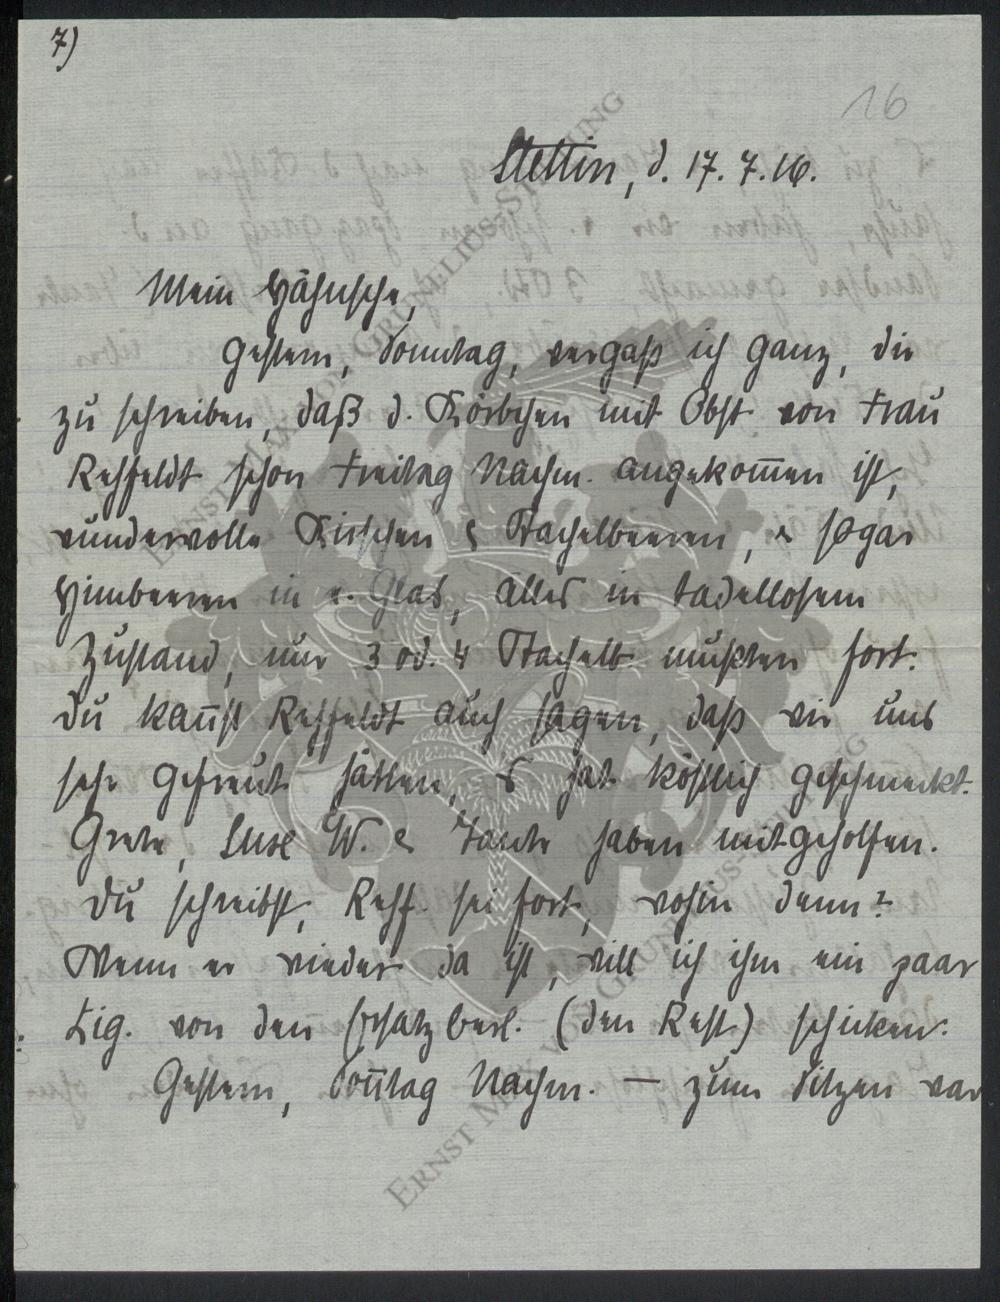 7)
16
Stettin, d. 17. 7. 16.
Mein Hähnsche,
Gestern, Sonntag, vergaß ich ganz, dir
zu schreiben, daß d. Körbchen mit Obst von Frau
Rehfeldt schon Freitag Nachm. angekom̅en ist,
wundervolle Kirschen & Stachelbeeren, & sogar
Himbeeren in e. Glas, alles in tadellosem
Zustand, nur 3 od. 4 Stachelb. mußten fort.
Du kan̅st Rehfeldt auch sagen, daß wir uns
sehr gefreut hätten, es hat köstlich geschmeckt.
Grete, W. & Tante haben mitgeholfen.
Du schreibst, Rehf. sei fort, wohin denn?
Wenn er wieder da ist, will ich ihm ein paar
Zig. von den (den Rest) schicken.
Gestern, Son̅tag Nachm. — zum Sitzen war
ERNST MAX VON GRUNELIUS-STIFTUNG
ERNST MAX VON GRUNELIUS-STIFTUNG